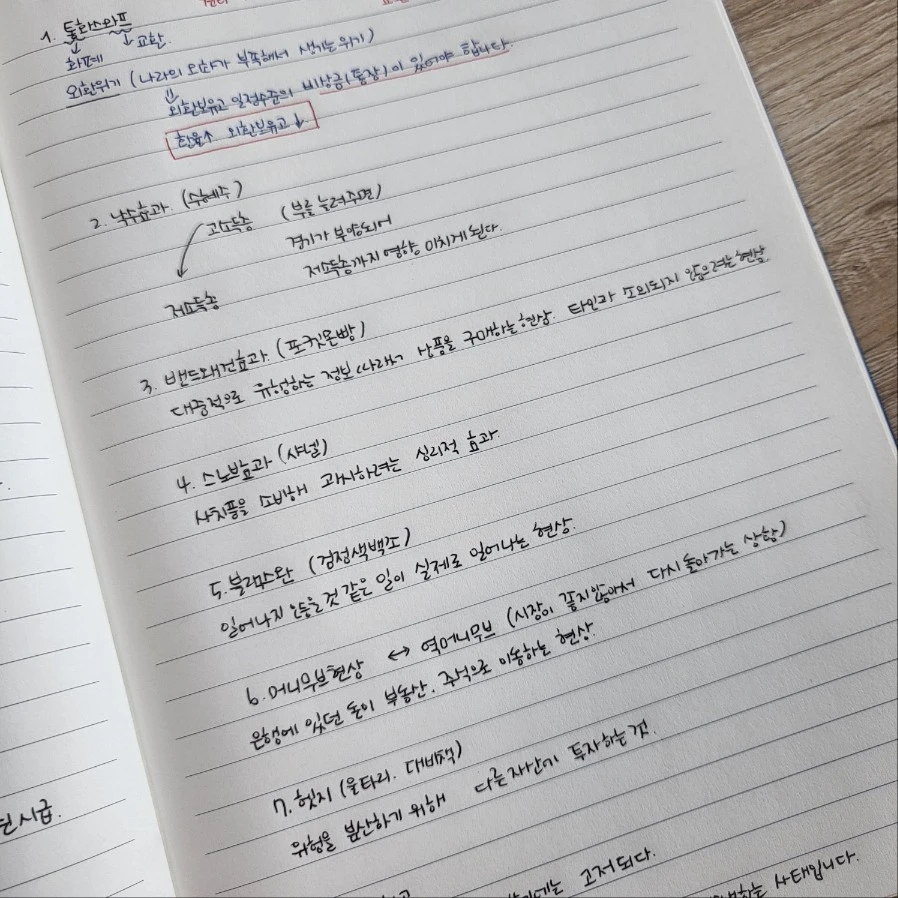 1. 통화스와프
화폐 교환.
외환위기 (나라의 외화가 부족해서 생기는 위기)
외환보유고 일정수준의 비상금(통장)이 있어야 합니다.
환율↑ 외환보유고↓
2. 낙수효과. (수혜주)
고소득층 (부를 늘려주면)
경기가 부양되어
저소득층까지 영향 미치게 된다.
저소득층
3. 밴드왜건효과. (포켓몬빵)
대중적으로 유행하는 정보 따라 상품을 구매하는 현상. 타인과 소외되지 않으려는 현상.
4. 스노브효과 (샤넬)
사치품을 소비해 과시하려는 심리적 효과.
5. 블랙스완 (검정색백조)
일어나지 않을 것 같은 일이 실제로 일어나는 현상.
6. 머니무브현상 ↔ 역머니무브 (시장이 좋지않아서 다시 돌아가는 상황)
은행에 있던 돈이 부동산. 주식으로 이동하는 현상.
7. 헷지 (울타리. 대비책)
위험을 분산하기 위해 다른자산에 투자하는 것.
고저되다.
하는 사태입니다.
시급.